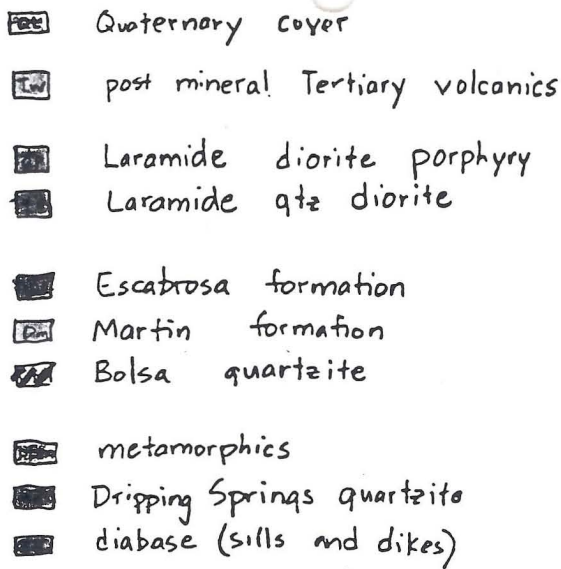 Qt Quaternary cover
Tw post mineral Tertiary volcanics
Laramide diorite porphyry
Laramide qtz diorite
Escabrosa formation
Dm Martin formation
Bolsa quartzite
metamorphics
Dripping Springs quartzite
diabase (sills and dikes)